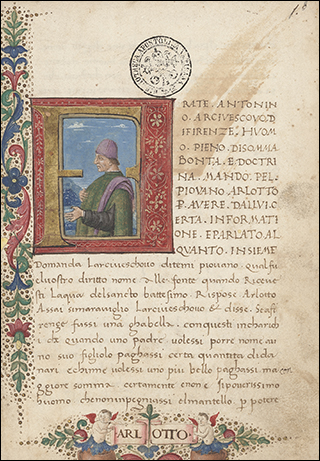 FRATE . ANTONIN
O . ARCIVESCOVO . D
I FIRENZE , HVOM
O . PIENO . DISOMMA
BONTA . E DOCTRI
NA . MANDO . PEL .
PIOVANO . ARLOTTO
P AVERE . DALLVI . C
ERTA . INFORMATI
ONE E PARLATO AL
QVANTO . INSIEME
Domanda Larciveschovo ditemi piovano qual fu
eluostro diritto nome alle fonte quando riceve
sti Laqua delsancto battesimo . Rispose Arlotto
Assai simaraviglio Larciveschovo & disse . Se aff
renze fussi una ghabella . conquesti incharich
i che quando uno padre volessi porre nome au
no suo figliolo paghassi certa quantita di da
nari echinne volessi uno piu bello paghassi ma
ggiore somma certamente enon e sipoverissimo
huomo chenoninpegniassi elmantello . p potere
ARLOTTO